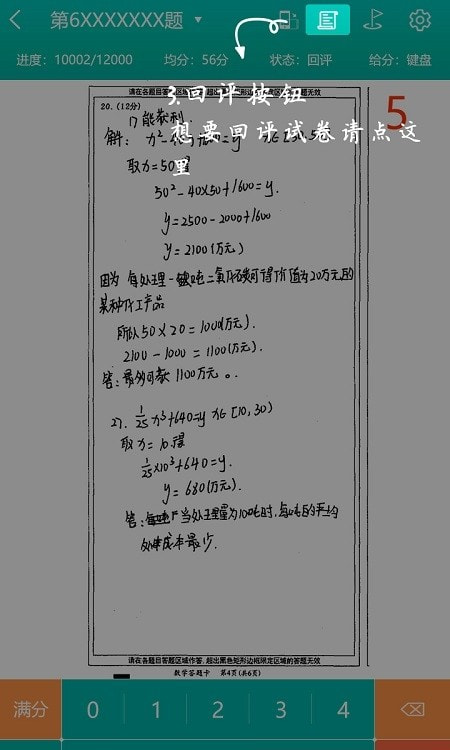 第6XXXXXXX题
进度：10002/12000 均分：56分 状态：回评 给分：键盘
请在各题目答题区域作答，超出黑色矩形边框限定区域的答题无效
3.回评按钮
想要回评试卷请点这
里
5
20.（12分）
解：
取x=50得
50²-40×50+1600=y.
y=2500-2000+1600
y=2100(万元)
因为 每处理一吨二氧化碳可得价值为20万元的
某种化工产品
所以50×20=1000(万元).
2100-1000=1100(万元).
答：最多可获1100万元。
27. 1/25 x³+640=y x∈[10,30)
取x=10得
1/25×10³+640=y.
y=680(万元).
答：当处理量为10吨时，每吨的平均
处理成本最少.
请在各题目答题区域作答，超出黑色矩形边框限定区域的答题无效
数学答题卡 第4页(共6页)
满分 0 1 2 3 4